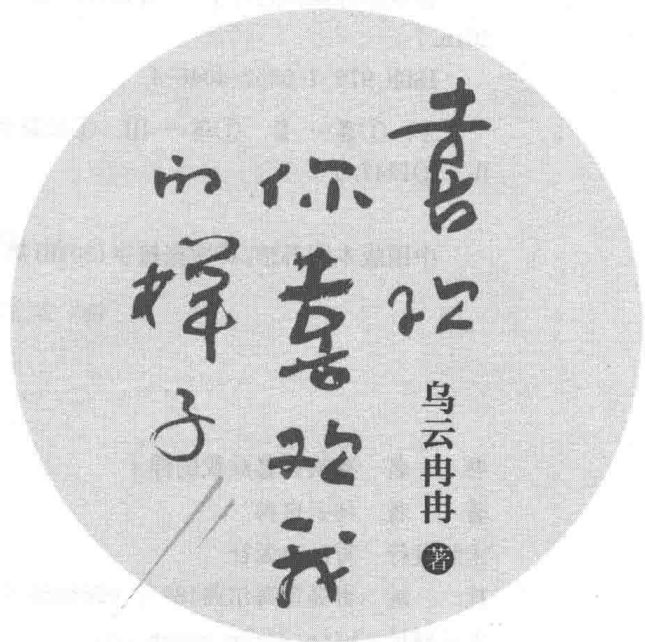 喜欢
你喜欢我
的样子
乌云冉冉 著